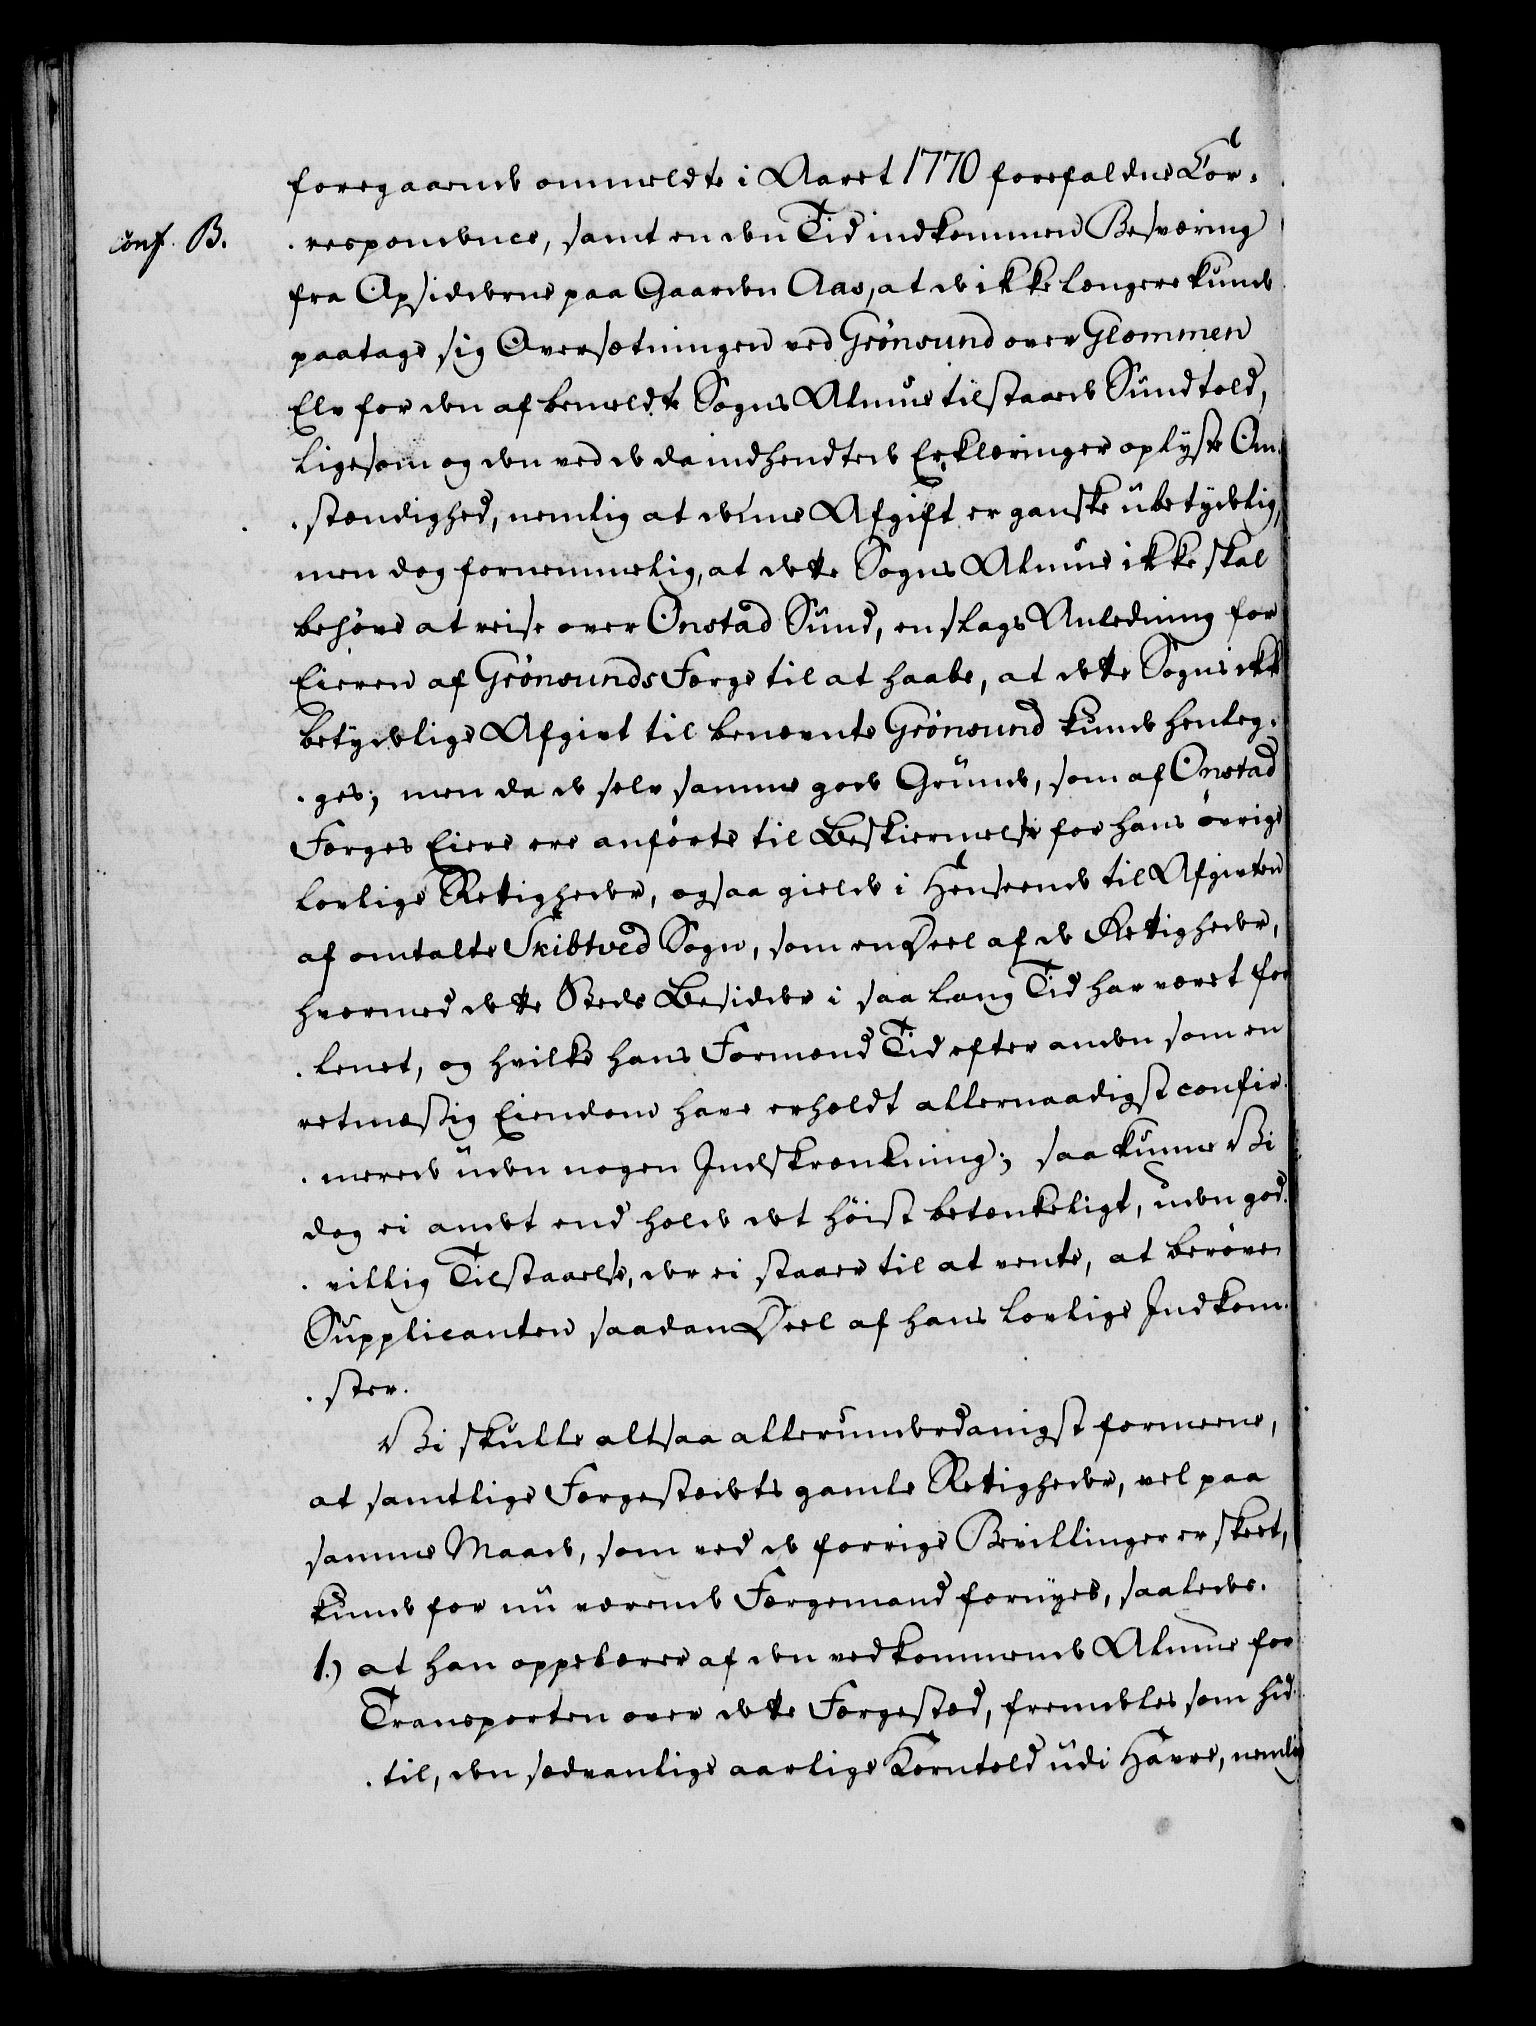 foregaaende ommeldte i Aaret 1770 forefaldne Cor-
conf. B.
respondence, samt en den Tid indkommen Besværing
fra Opsidderne paa Gaarden Aas, at de ikke længere kunde
paatage sig Oversætningen ved Grönsund over Glommen
Elv for den af bemeldte Sogns Almue tilstaaede Sundtold,
ligesom og den ved de da indhendtede Erklæringer oplyste Om-
stændighed, nemlig at denne Afgift er ganske ubetydelig,
men dog fornemmelig, at dette Sogns Almue ikke skal
behöve at reise over Onstad Sund, en slags Anledning for
Eieren af Grönsunds Færge til at haabe, at dette Sogns ikke
betydelige Afgivt til benævnte Grönsund kunde henleg-
ges; men da de selv samme gode Grunde, som af Onstad
Færges Eiere ere anförte til Beskiermelse for hans övrige
lovlige Rettigheder, ogsaa gielde i Henseende til Afgivten
af omtalte Skibtved Sogn, som en Deel af de Rettigheder,
hvormed dette Steds Besidder i saa lang Tid har været for-
lenet, og hvilke hans Formænd Tid efter anden som en
retmæssig Eiendom have erholdt allernaadigst confir-
merede uden nogen Indskrænkning; saa kunne Vi
dog ei andet end holde det höist betænkeligt, uden god-
villig Tilstaaelse, der ei staaer til at vente, at beröve
Supplicanten saadan Deel af hans lovlige Indkom-
ster.
Vi skulle altsaa allerunderdanigst formeene,
at samtlige Færgestædets gamle Rettigheder, vel paa
samme Maade, som ved de forrige Bevillinger er skeet,
kunde for nu værende Færgemand fornyes, saaledes.
1.) at han oppebærer af den vedkommende Almue for
Transporten over dette Færgestæd, fremdeles som hid-
til, den sædvanlige aarlige Korntold udi Havre, nemlig